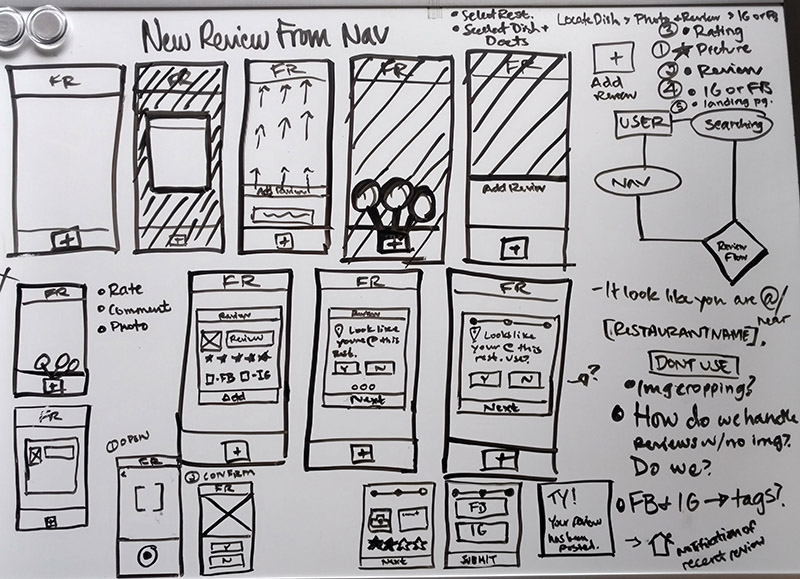 New Review From Nav
• Select Rest.
• Seelect Dish +
Doets
Locate Dish > Photo + Review > IG or FB
③ • Rating
① ★ Picture
③ • Review
④ • IG or FB
⑤ • landing pg.
+
Add
Review
USER
Searching
NAV
Review
Flow
FR
+
FR
+
FR
Add Review
+
FR
+
FR
Add Review
+
FR
+
• Rate
• Comment
• Photo
FR
Review
Review
□-FB □-IG
Add
+
FR
Review
Looks like
youre @ this
Rest.
Y N
Next
+
FR
Looks like
your @ this
rest. use?
Y N
Next
+
?
- It look like you are @/
near
[RESTAURANT NAME].
DONT USE
• Img cropping?
• How do we handle
Reviews w/ no img?
Do we?
• FB & IG → tags?
→ notification of
recent review
FR
+
① OPEN
FR
② CONFIRM
FR
Y
N
Next
FB
IG
SUBMIT
TY!
Your review
has been
posted.